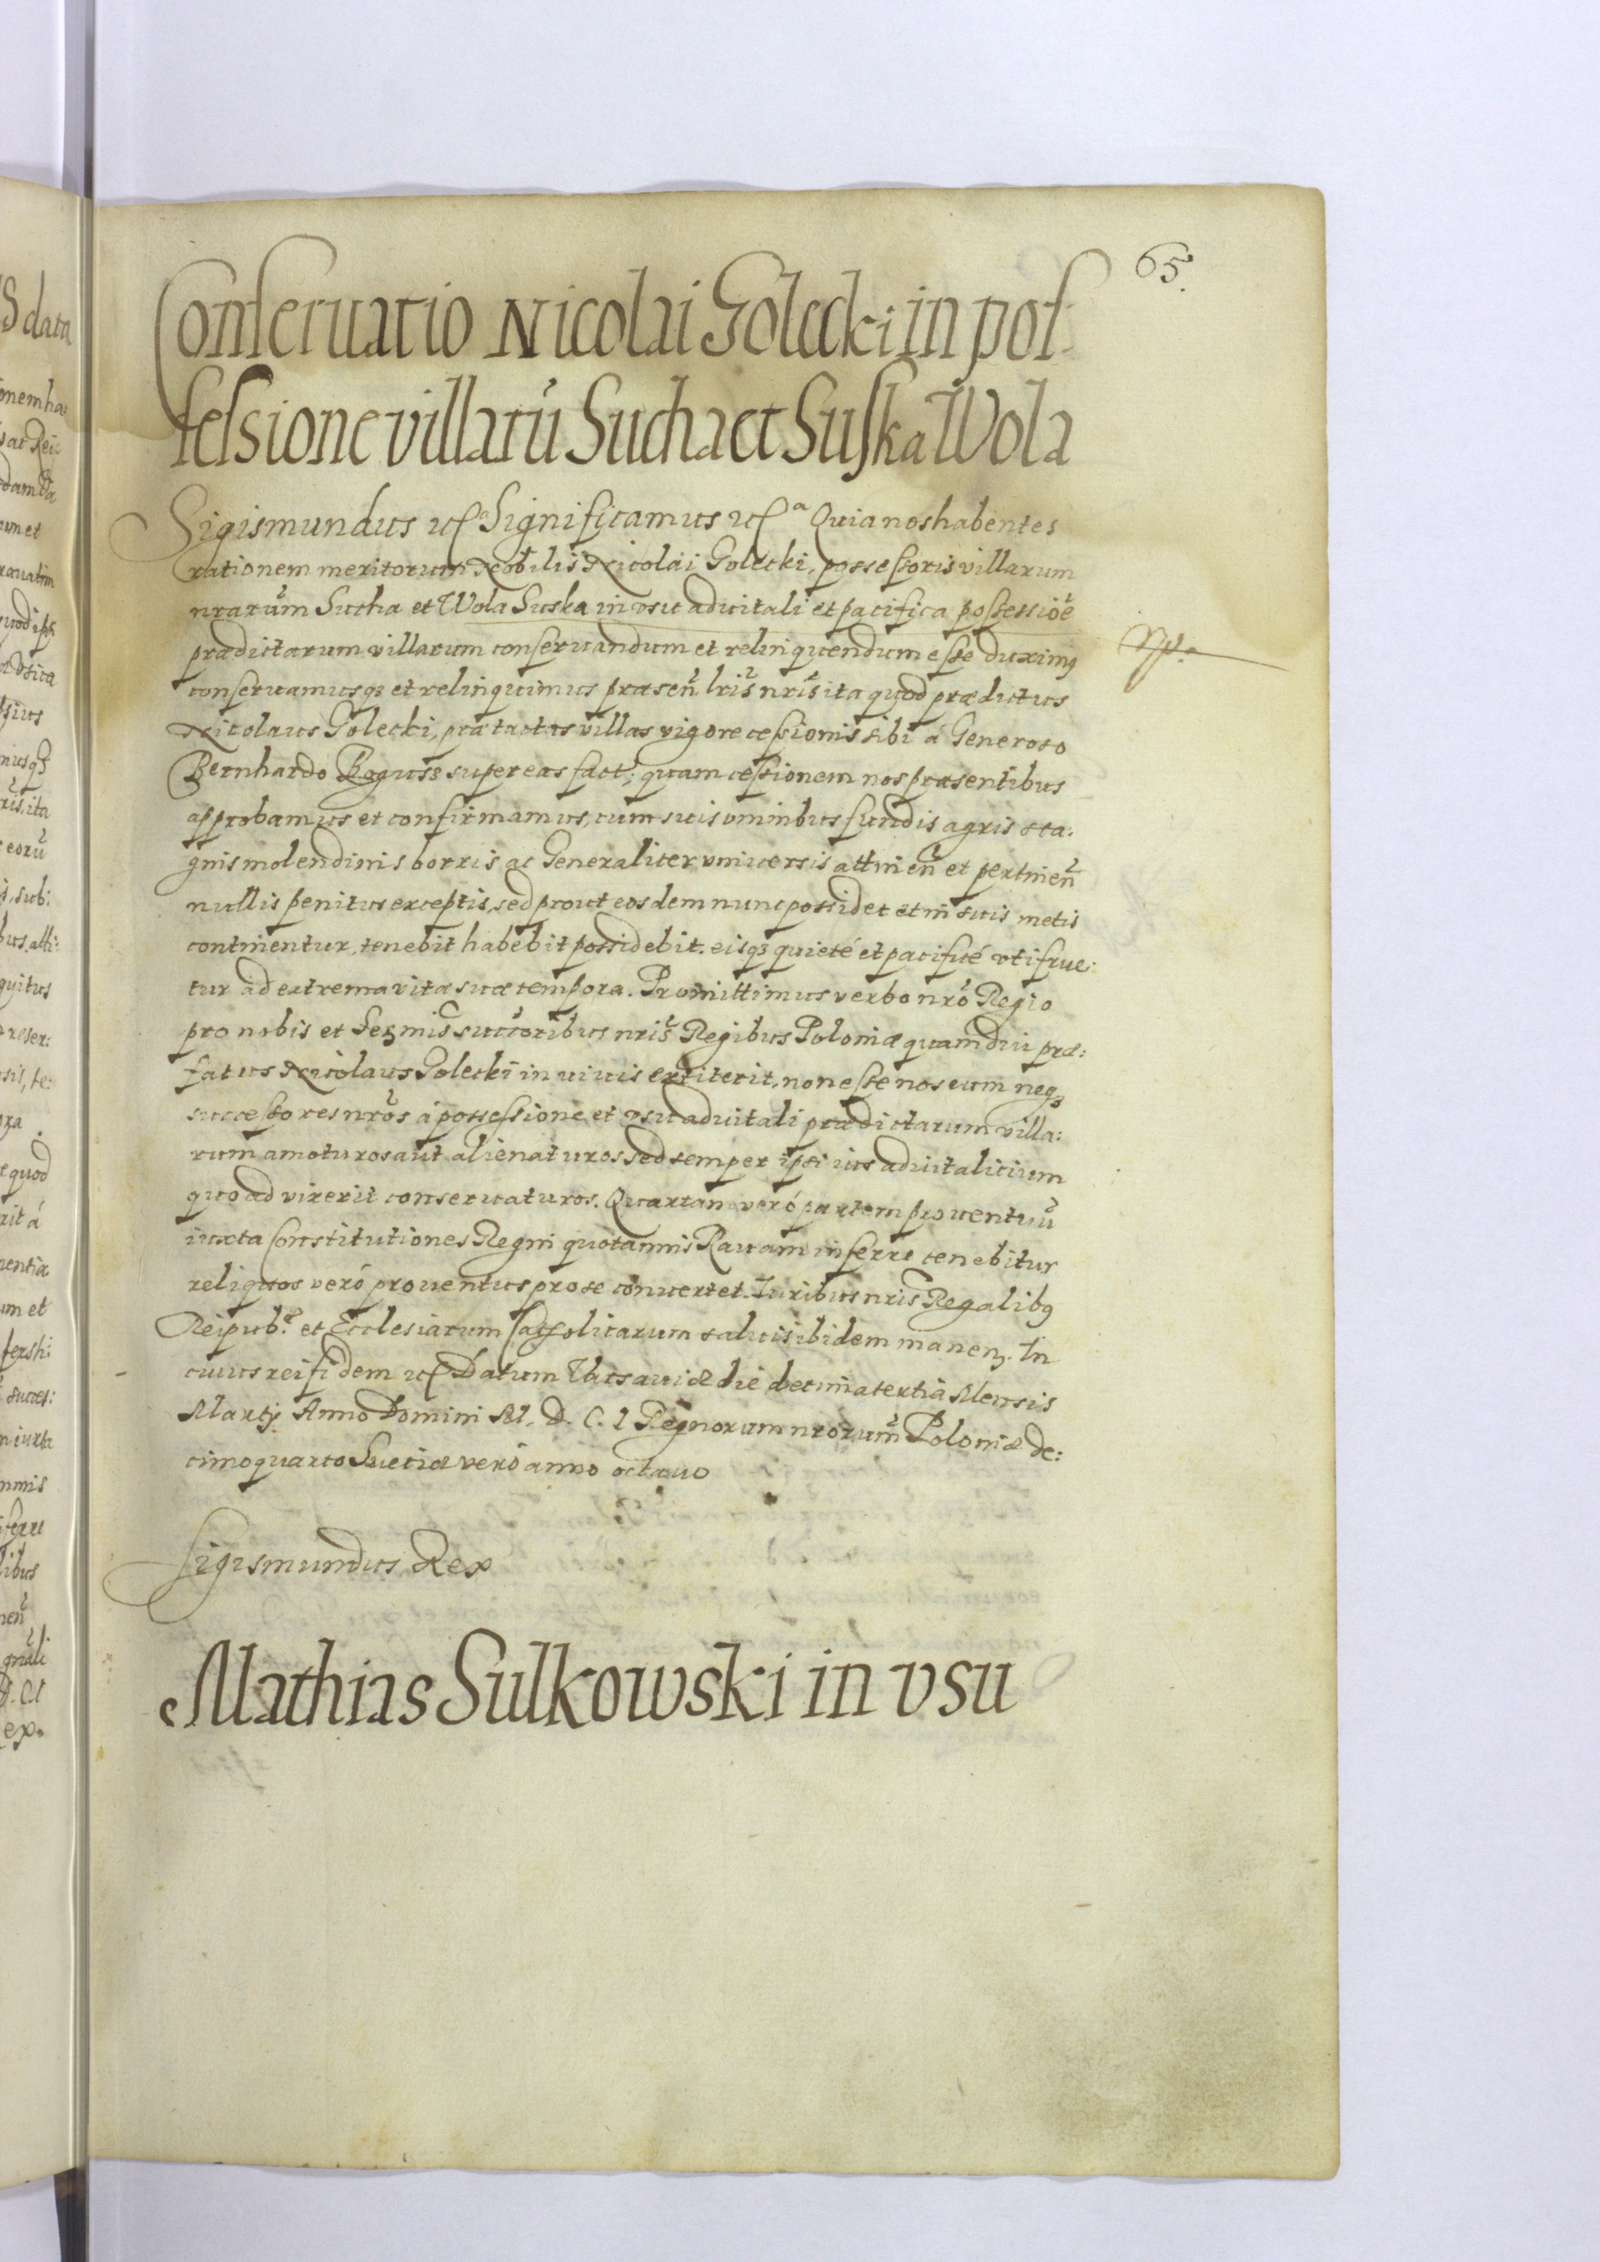 65.
Conseruatio Nicolai Golecki in pos:
sessione villarũ Sucha et Suska Wola
Sigismundus etc^a Significamus etc^a Quia nos habentes
rationem meritorum Nobilis Nicolai Golecki, possessoris villarum
nrarum̃ Sucha et Wola Suska in vsu aduitali et pacifica possessiõe
prædictarum villarum conseruandum et relinquendum esse duximꝰ
conseruamusqꝫ et relinquimus præsen̄ lris̃ nris̃ ita quod prædictus
Nicolaus Golecki, prætactas villas vigore cessionis sibi á Generoso
Bernhardo Bogusz super eas fact; quam cessionem nos præsentibus
approbamus et confirmamus, cum suis omnibus fundis agris sta:
gnis molendinis borris ac Generaliter vniuersis attinen̄ et pertinen̄
nullis penitus exceptis, sed prout eosdem nunc possidet et in suis metis
continentur, tenebit habebit possidebit. eisqꝫ quietè et pacificè vti frue:
tur ad extrema vitæ suæ tempora. Promittimus verbo nrõ Regio
pro nobis et Sermis̃ succoribus nris̃ Regibus Poloniæ quamdiu præ:
fatus Nicolaus Golecki in uiuis extiterit, non esse nos eum neqꝫ
successores nrõs á possessione et vsu aduitali prædictarum villa:
rum amoturos aut alienaturos sed semper ipsi ius aduitalitium
quoad vixerit conseruaturos. Quartam veró partem prouentuũ
iuxta Constitutiones Regni quotannis Rauam inferre tenebitur
reliquos veró prouentus pro se conuertet. Iuribus nris̃ Regalibꝰ
Reipub: et Ecclesiarum Catholicarum saluis ibidem manenꝫ. In
cuius rei fidem etc Datum Varsauiæ die decima tertia Mensis
Martij Anno Domini M. D. C. I Regnorum nrorum̃ Poloniæ de:
cimoquarto Sueciæ veró anno octauo
Sigismundus Rex
Mathias Sulkowski in vsu